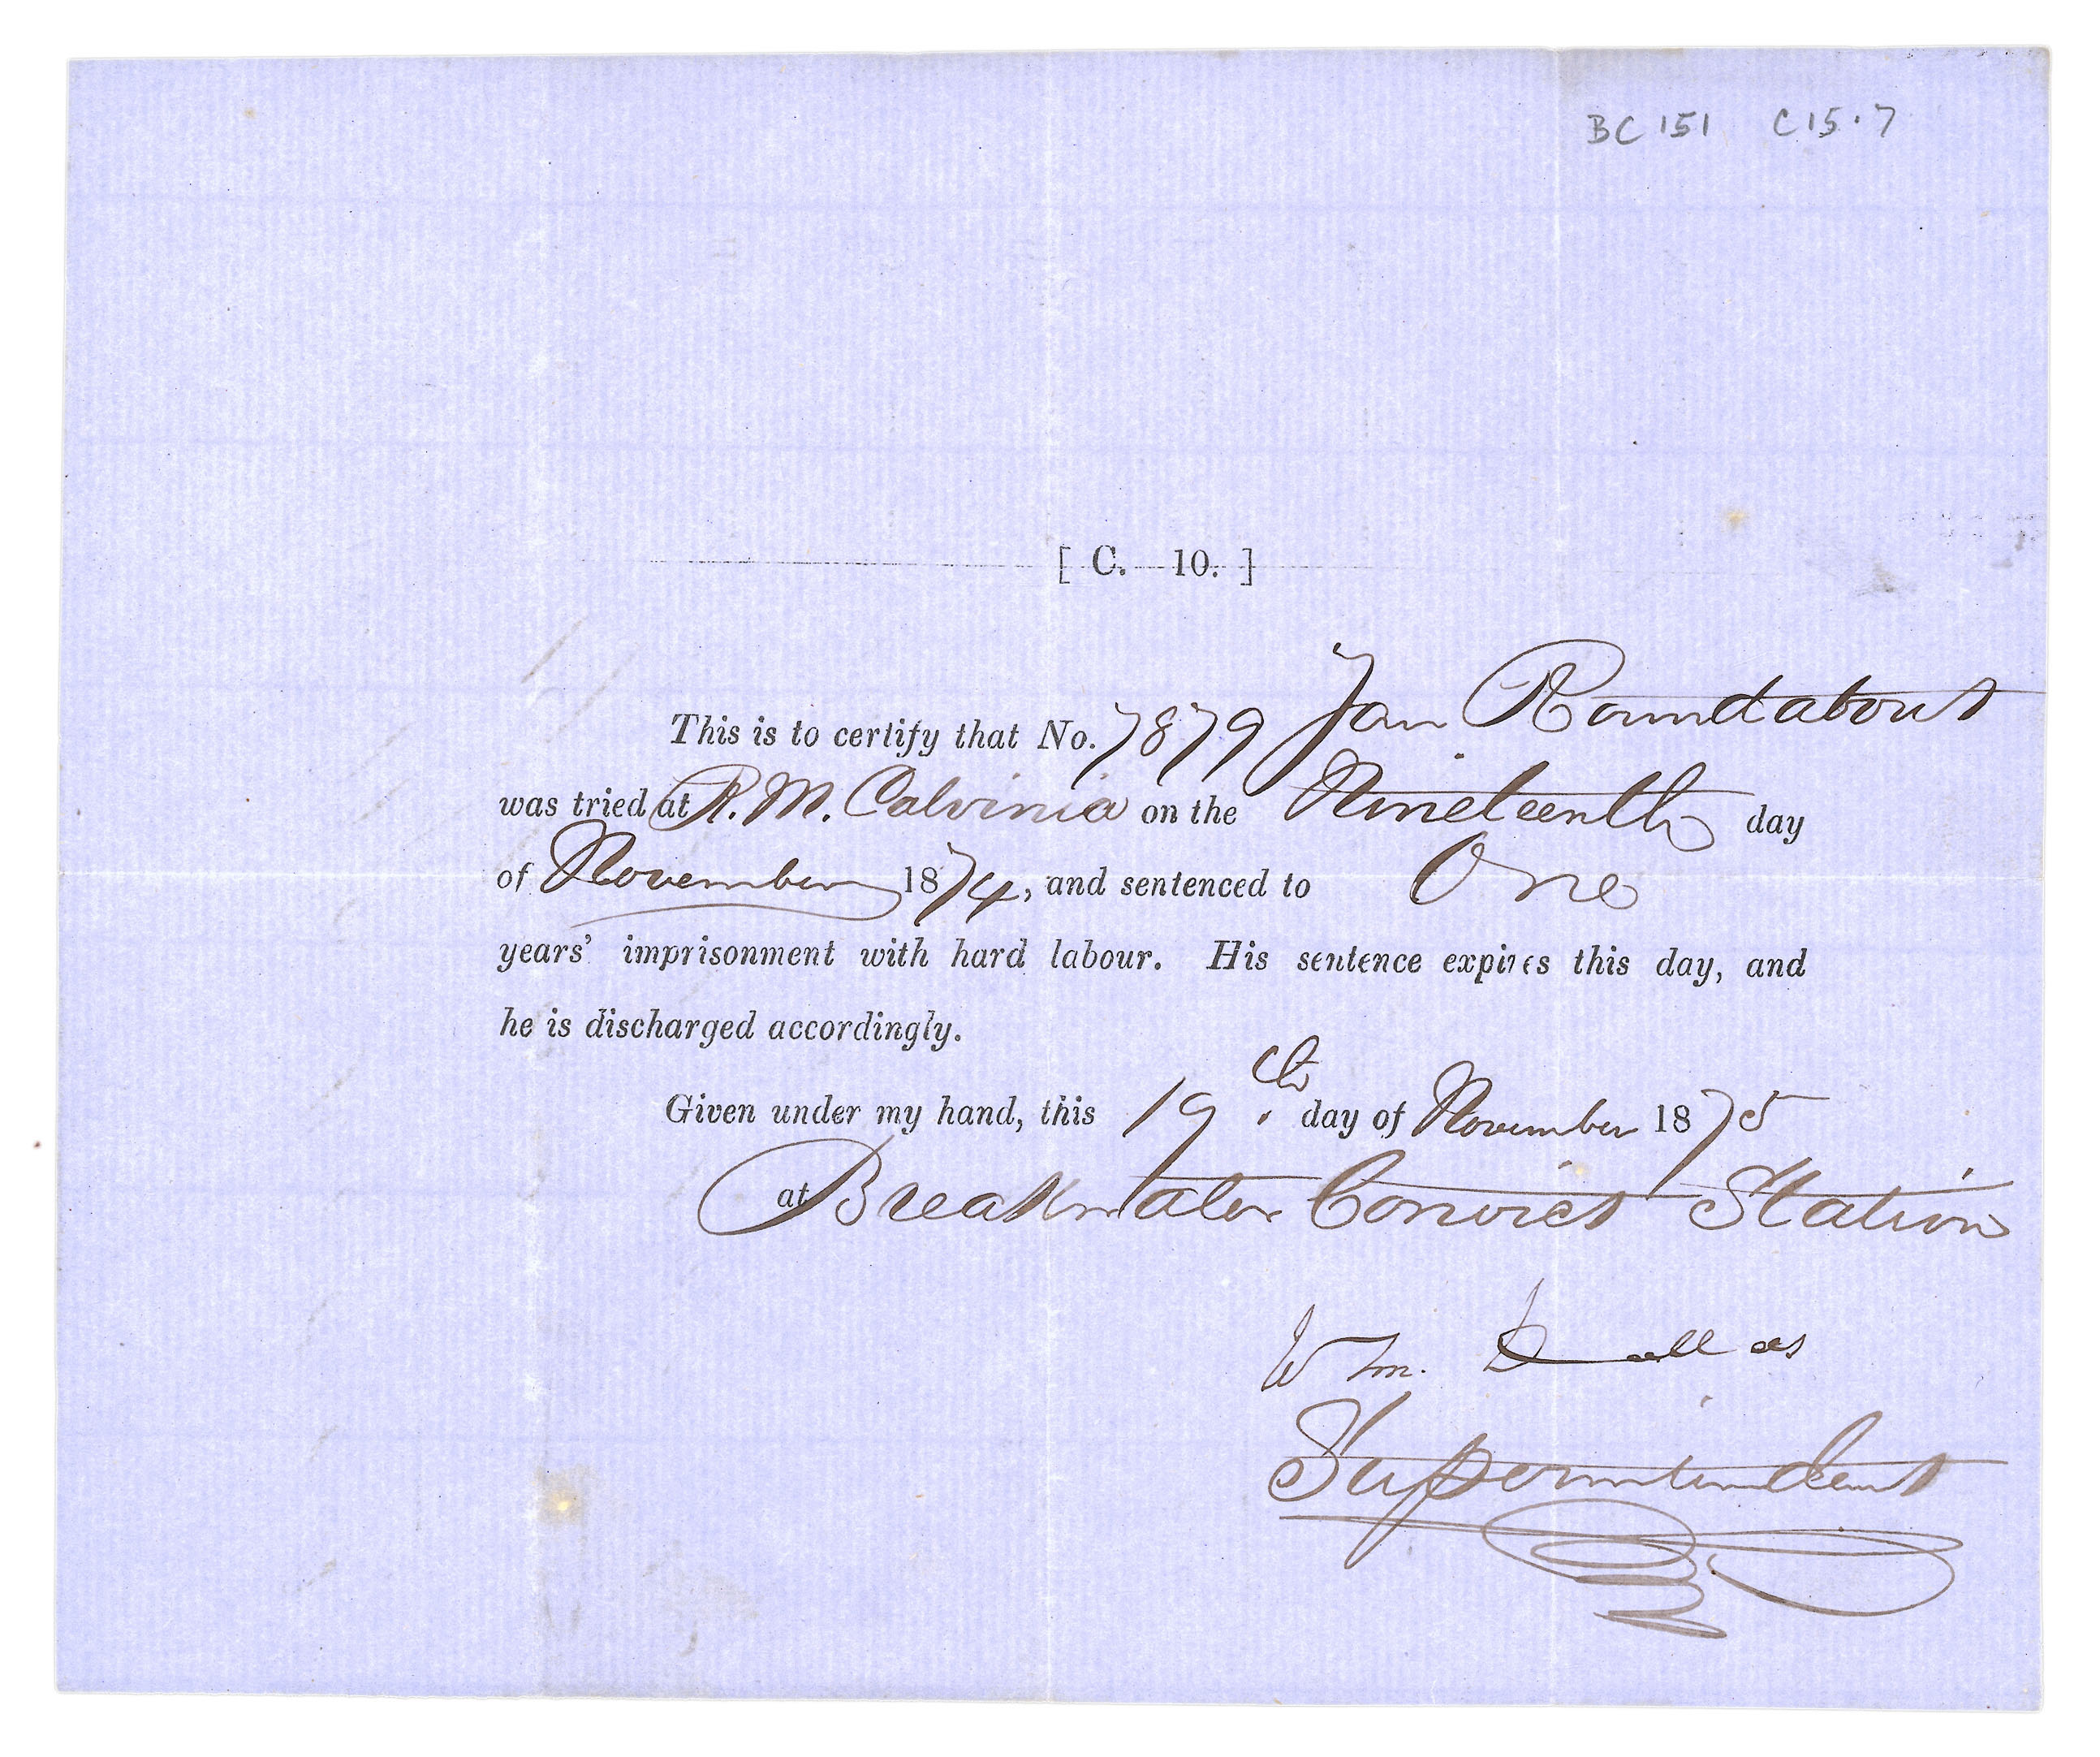 BC 151 C15.7
[ C. 10. ]
This is to certify that No. 7879 Jan Roundabout
was tried at R. M. Calvinia on the Nineteenth day
of November 1874, and sentenced to One
years' imprisonment with hard labour. His sentence expires this day, and
he is discharged accordingly.
Given under my hand, this 19th day of November 1875
at Breakwater Convict Station
Wm. Dallas
Superintendent